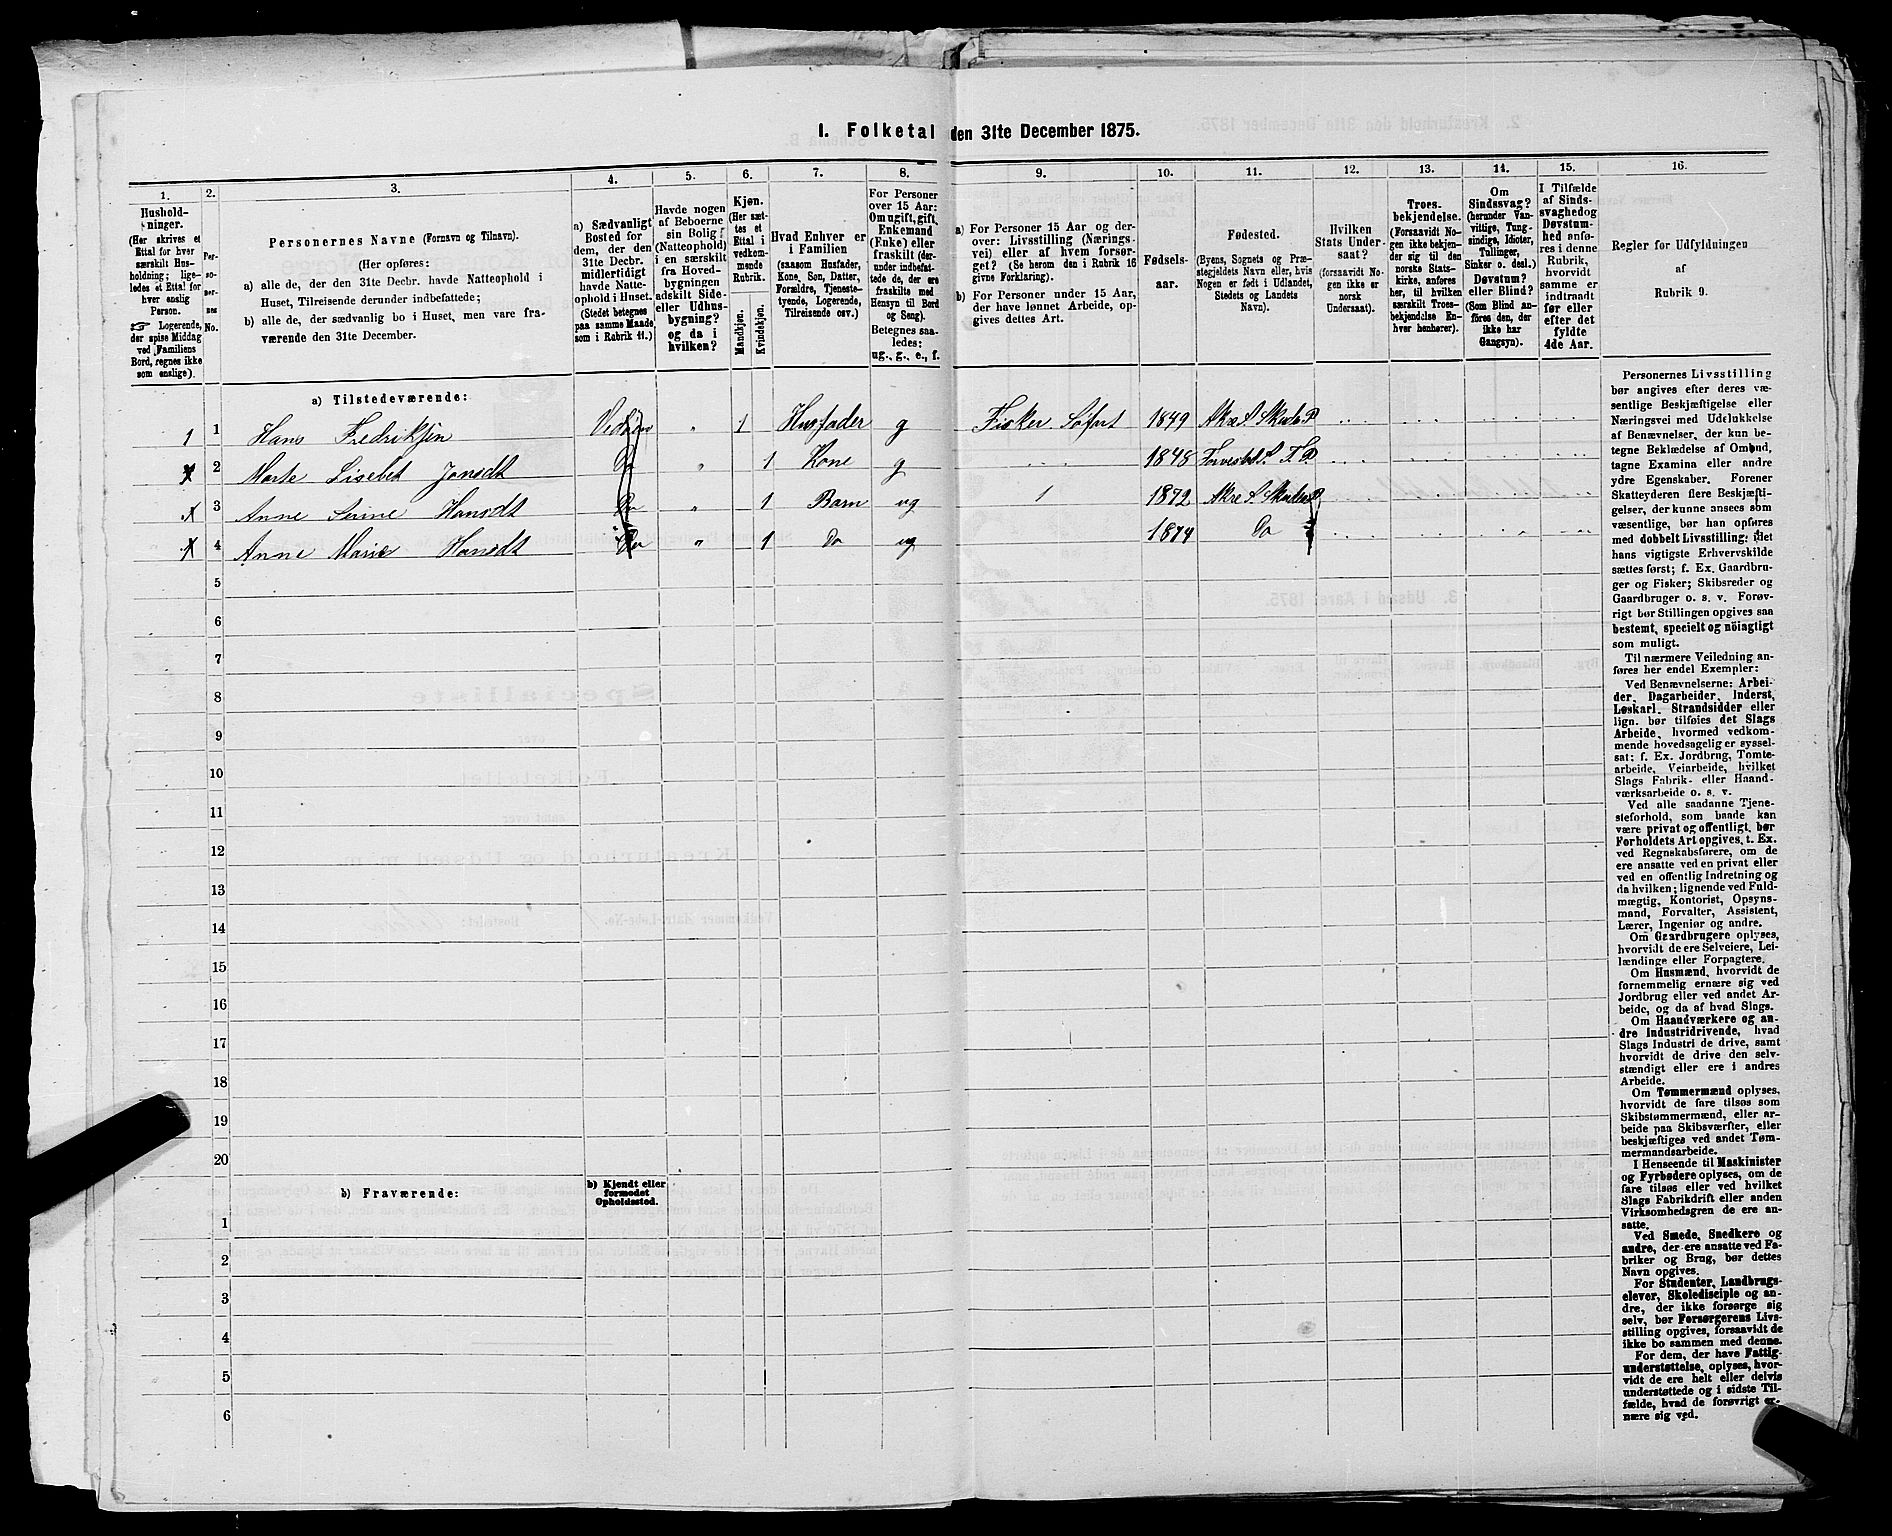 I. Folketal den 31te December 1875.
1. 2. 3. 4. 5. 6. 7. 8. 9. 10. 11. 12. 13. 14. 15. 16.
Hushold-
ninger.
(Her skrives et
Ettal for hver
særskilt Hus-
holdning; lige-
ledes et Ettal for
hver enslig
Person.
☞ Logerende,
der spise Middag
ved Familiens
Bord, regnes ikke
som enslige).
Per-
so-
ner-
nes
No.
Personernes Navne (Fornavn og Tilnavn).
(Her opføres:
a) alle de, der den 31te Decbr. havde Natteophold i
Huset, Tilreisende derunder indbefattede;
b) alle de, der sædvanlig bo i Huset, men vare fra-
værende den 31te December.
a) Sædvanligt
Bosted for
dem, der den
31te Decbr.
midlertidigt
havde Natte-
ophold i Huset.
(Stedet betegnes
paa samme Maade
som i Rubrik 11.)
Havde nogen
af Beboerne
sin Bolig
(Natteophold)
i en særskilt
fra Hoved-
bygningen
adskilt Side-
eller Udhus-
bygning?
og da i
hvilken?
Kjøn.
(Her sæt-
tes et
Ettal i
vedkom-
mende
Rubrik.
Mandkjøn.
Kvindekjøn.
Hvad Enhver er
i Familien
(saasom Husfader,
Kone, Søn, Datter,
Forældre, Tjeneste-
tyende, Logerende,
Tilreisende osv.)
For Personer
over 15 Aar:
Om ugift, gift,
Enkemand
(Enke) eller
fraskilt (der-
under indbefat-
tede de, der ere
fraskilte med
Hensyn til Bord
og Seng).
Betegnes saa-
ledes:
ug., g., e., f.
a) For Personer 15 Aar og der-
over: Livsstilling (Nærings-
vei) eller af hvem forsør-
get? (Se herom den i Rubrik 16
givne Forklaring).
b) For Personer under 15 Aar,
der have lønnet Arbeide, op-
gives dettes Art.
Fødsels-
aar.
Fødested.
(Byens, Sognets og Præ-
stegjeldets Navn eller, hvis
Nogen er født i Udlandet,
Stedets og Landets
Navn).
Hvilken
Stats Under-
saat?
(forsaavidt No-
gen ikke er
norsk
Undersaat).
Troes-
bekjendelse.
(Forsaavidt No-
gen ikke bekjen-
der sig til den
norske Stats-
kirke, anføres
her, til hvilken
særskilt Troes-
bekjendelse En-
hver henhører).
Om
Sindssvag?
(herunder Van-
vittige, Tung-
sindige, Idioter,
Tullinger,
Sinker o. desl.)
Døvstum?
eller Blind?
(Som Blind an-
føres den, der
ikke har
Gangsyn).
I Tilfælde
af Sinds-
svaghed og
Døvstum-
hed anfø-
res i denne
Rubrik,
hvorvidt
samme er
indtraadt
før eller
efter det
fyldte
4de Aar.
Regler for Udfyldningen
af
Rubrik 9.
a) Tilstedeværende:
1 1 Hans Fredriksen Vedøen " 1 Husfader g Fisker Søfart 1849 Akre S. Skudes P.
2 Marte Lisebet Jonsdt Do " 1 Kone g 1848
3 Anne Serine Hansdt Do " 1 Barn ug 1 1872 Akre S Skudes P.
4 Anne Marie Hansdt Do " 1 Do ug 1874 Do
5
6
7
8
9
10
11
12
13
14
15
16
17
18
19
20
b) Fraværende:
b) Kjendt eller
formodet
Opholdssted.
1
2
3
4
5
6
Personernes Livsstilling
bør angives efter deres væ-
sentlige Beskjæftigelse eller
Næringsvei med Udelukkelse
af Benævnelser, der kun be-
tegne Beklædelse af Ombud,
tagne Examina eller andre
ydre Egenskaber. Forener
Skatteyderen flere Beskjæfti-
gelser, der kunne ansees som
væsentlige, bør han opføres
med dobbelt Livsstilling, idet
hans vigtigste Erhvervskilde
sættes først; f. Ex. Gaardbru-
ger og Fisker; Skibsreder og
Gaardbruger o. s. v. Forøv-
rigt bør Stillingen opgives saa
bestemt, specielt og nöiagtigt
som muligt.
Til nærmere Veiledning an-
føres her endel Exempler:
Ved Benævnelserne: Arbei-
der, Dagarbeider, Inderst,
Løskarl, Strandsidder eller
lign. bør tilføies det Slags
Arbeide, hvormed vedkom-
mende hovedsagelig er syssel-
sat: f. Ex. Jordbrug, Tomte-
arbeide, Veiarbeide, hvilket
Slags Fabrik- eller Haand-
værksarbeide o. s. v.
Ved alle saadanne Tjene-
steforhold, som baade kan
være privat og offentligt, bør
Forholdets Art opgives, t. Ex.
ved Regnskabsførere, om de
ere ansatte ved en privat eller
ved en offentlig Indretning og
da hvilken; lignende ved Fuld-
mægtig, Kontorist, Opsyns-
mand, Forvalter, Assistent,
Lærer, Ingeniør og andre.
Om Gaardbrugere oplyses,
hvorvidt de ere Selveiere, Lei-
lændinge eller Forpagtere.
Om Husmænd, hvorvidt de
fornemmelig ernære sig ved
Jordbrug eller ved andet Ar-
beide, og da af hvad Slags.
Om Haandværkere og an-
dre Industridrivende, hvad
Slags Industri de drive, samt
hvorvidt de drive den selv-
stændigt eller ere i andres
Arbeide.
Om Tømmermænd oplyses,
hvorvidt de fare tilsøs som
Skibstømmermænd, eller ar-
beide paa Skibsværfter, eller
beskjæftiges ved andet Tøm-
mermandsarbeide.
I Henseende til Maskinister
og Fyrbødere oplyses, om de
fare tilsøs eller ved hvilket
Slags Fabrikdrift eller anden
Virksomhedsgren de ere an-
satte.
Ved Smede, Snedkere og
andre, der ere ansatte ved Fa-
briker og Brug, bør dettes
Navn opgives.
For Studenter, Landbrugs-
elever, Skoledisciple og an-
dre, der ikke forsørge sig
selv, bør Forsørgerens Livs-
stilling opgives, forsaavidt de
ikke bo sammen med denne.
For dem, der have Fattig-
understøttelse, oplyses, hvor-
vidt de ere helt eller delvis
understøttede og i sidste Til-
fælde, hvad de forøvrigt er-
nære sig ved.